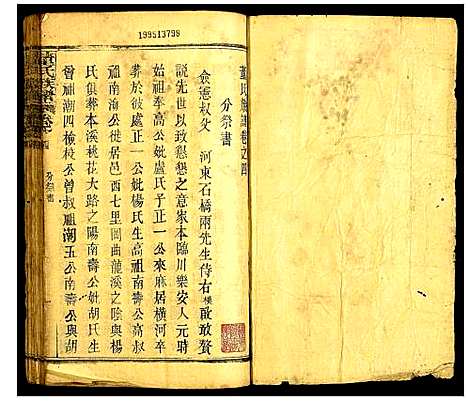 199513799
董氏族譜卷之四
分祭書
僉憲叔父 河東石橋兩先生侍右樸敢敢贅
說先世以政懇懇之意家本臨川樂安人元時
始祖奉高公妣盧氏子正一公來居橫河卒
葬於彼處正一公妣楊氏生高祖南壽公高叔
祖南海公徙居邑西七里岡曲龍溪之陰與楊
氏俱葬本溪桃花大路之陽南壽公妣胡氏生
曾祖潮四檢校公曾叔祖潮五公南海公與胡
分祭書